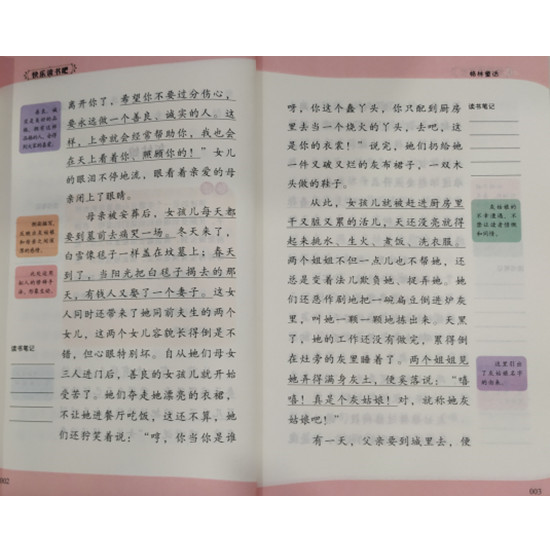 快乐读书吧
离开你了，希望你不要过分伤心，
要永远做一个善良、诚实的人。这
样，上帝就会经常帮助你，我也会
在天上看着你、照顾你的！”女儿
的眼泪不停地流，眼看着亲爱的母
亲闭上了眼睛。
母亲被安葬后，女孩儿每天都
要到墓前去痛哭一场。冬天来了，
白雪像毯子一样盖在坟墓上；春天
到了，当阳光把白毯子揭去的那
天，有钱人又娶了一个妻子。这女
人同时还带来了她同前夫生的两个
女儿，这两个女儿容貌长得倒是不
错，但心眼特别坏。自从她们母女
三人进门后，善良的女孩儿就开始
受苦了。她们夺走她漂亮的衣裙，
不让她进餐厅吃饭，这还不算，她
们还狞笑着说：“哼，你当你是谁
读书笔记
002
格林童话
呀，你这个蠢丫头，你只配到厨房
里去当一个烧火的丫头，去吧，这
是你的衣裳！”说完，她们扔给她
一件又破又烂的灰布裙子，一双木
头做的鞋子。
从此，女孩儿就被赶进厨房里
干又脏又累的活儿，天还没亮就得
起来挑水、生火、煮饭、洗衣服。
两个姐姐不但一点儿也不帮她，还
总是变着法儿欺负她、捉弄她。她
们还恶作剧地把一碗扁豆倒进炉灰
里，叫她一颗一颗地拣出来。天黑
了，她的工作还没有做完，累得倒
在灶旁的灰里睡着了。两个姐姐见
她弄得满身灰土，便奚落说：“嘻
嘻！真是个灰姑娘！对，就称她灰
姑娘吧！”
有一天，父亲要到城里去，便
读书笔记
灰姑娘的
不幸遭遇，不
禁让读者惋惜
和同情。
这里引出
了灰姑娘名字
的由来。
003